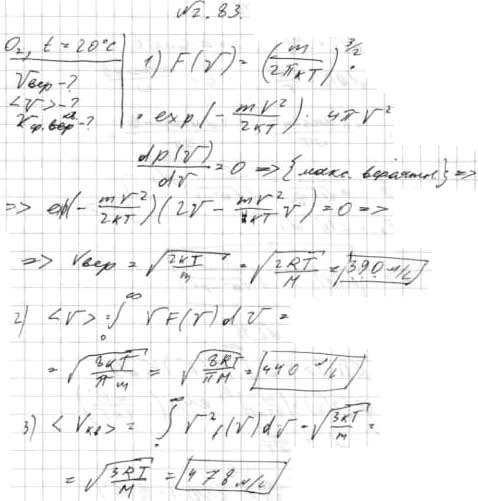 № 2.83.
O₂, t = 20°C
Vвер - ?
<v> - ?
1) F(v) = (m / 2πkT)^{3/2} ·
· exp(- mv² / 2kT) · 4πv²
dp(v) / dv = 0 => {макс. вероятн.} =>
=> exp(- mv² / 2kT)(2v - mv² / kT v) = 0 =>
=> Vвер = √(2kT / m) = √(2RT / M) = 390 м/с
2) <v> = ∫₀^∞ v F(v) dv =
= √(8kT / πm) = √(8RT / πM) = 440 м/с
3) <Vкв> = ∫ v² f(v) dv = √(3kT / m) =
= √(3RT / M) = 478 м/с